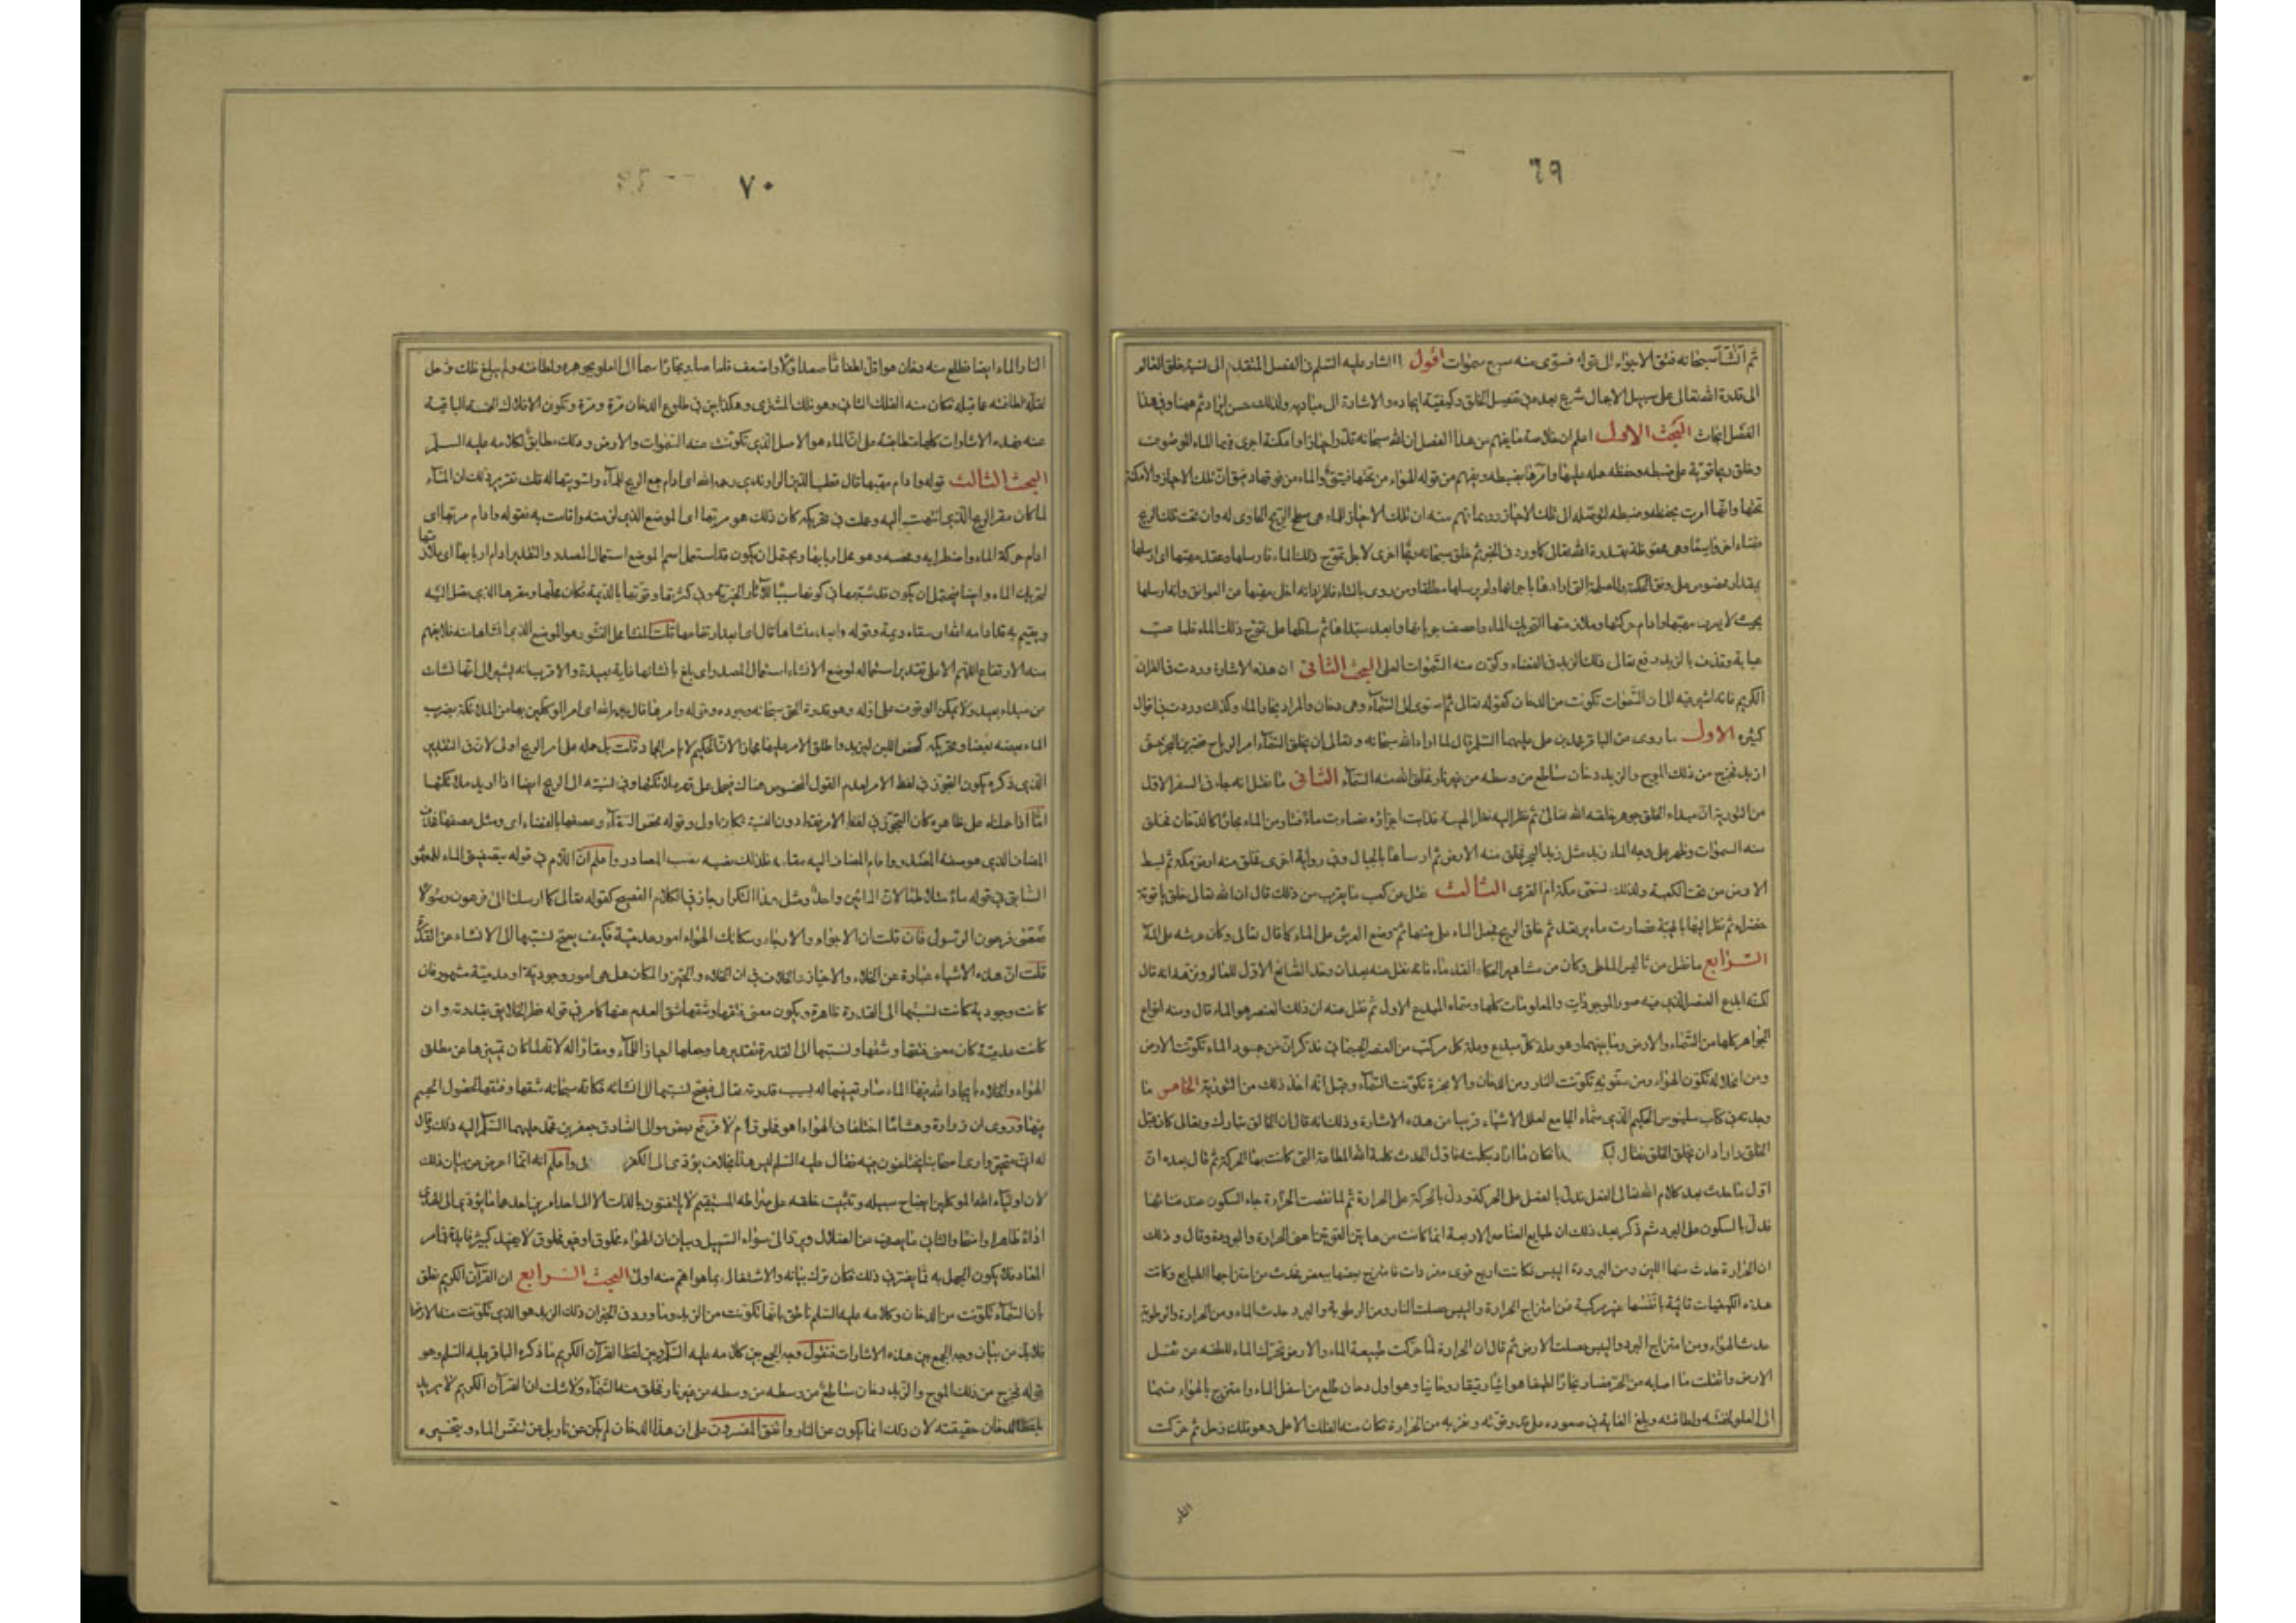 ٦٩
ثم أنشأ سبحانه فتق الاجواء الى قوله فسوى منه سبع سموات اقول لما اشار عليه السلم فى الفصل المتقدم الى نسبة خلق العالم
الى قدرة الله تعالى على سبيل الاجمال شرع بعده فى تفصيل الخلق وكيفية ايجاده والاشارة الى مباديه ولذلك حسن ايراد ثم هيهنا وفى هذا
الفصل ابحاث البحث الاول اعلم ان خلاصة ما يفهم من هذا الفصل ان الله سبحانه قدر احيازا وامكنة اجرى فيها الماء الموصوف
وخلق ريحا قوية على ضبطه وحفظه حمله عليها وامرها بضبطه ويفهم من قوله الهواء من تحتها فتيق والماء من فوقها دفيق ان تلك الاحياز والامكنة
تحتها وانها امرت بحفظه وضبطه لتوصله الى تلك الاحياز وربما فهم منه ان تلك الاحياز للماء هى سطح الريح الحاوى له وان تحت تلك الريح
فضاء اخر واسعا وهى محفوظة بقدرة الله تعالى كما ورد فى الخبر ثم خلق سبحانه ريحا اخرى لاجل تموج ذلك الماء فارسلها وعقد مهبها اى ارسلها
بمقدار مخصوص على وفق الحكمة والمصلحة التى ارادها باجرائها ولم يرسلها مطلقا ومن روى بالتاء فالمراد انه اخلى مهبها عن العوائق وانه ارسلها
بحيث لا يعرف مهبها وادام حركتها وملازمتها لتحريك الماء واعصف جريانها وابعد مبتداها ثم سلطها على تموج ذلك الماء فلما عب
عبابه وقذف بالزبد رفع تعالى ذلك الزبد فى الفضاء وكون منه السموات العلى البحث الثانى ان هذه الاشارة وردت فى القران
الكريم فانه اشير فيه الى ان السموات تكونت من الدخان كقوله تعالى ثم استوى الى السماء وهى دخان والمراد بخار الماء وكذلك وردت فى اقوال
كثيرة الاول ما روى عن الباقر محمد بن على عليهما السلم قال لما اراد الله سبحانه وتعالى ان يخلق السماء امر الرياح فضربن البحر حتى
ازبد فخرج من ذلك الموج والزبد دخان ساطع من وسطه من غير نار فخلق الله منه السماء الثانى ما نقل انه جاء فى السفر الاول
من التورية ان مبداء الخلق جوهر خلقه الله تعالى ثم نظر اليه نظر الهيبة فذابت اجزاؤه فصارت ماء فثار من الماء بخار كالدخان فخلق
منه السموات وظهر على وجه الماء زبد مثل زبد البحر فخلق منه الارض ثم ارساها بالجبال وفى رواية اخرى فخلق منه ارض مكة ثم بسط
الارض من تحت الكعبة ولذلك تسمى مكة ام القرى الثالث نقل عن كعب ما يقرب من ذلك قال ان الله تعالى خلق ياقوتة
خضراء ثم نظر اليها بالهيبة فصارت ماء يرتعد ثم خلق الريح فجعل الماء على متنها ثم وضع العرش على الماء كما قال تعالى وكان عرشه على الماء
الرابع ما نقل عن ثاليس الملطى وكان من مشاهير الحكماء القدماء فانه نقل عنه بعد ان وحد الصانع الاول للعالم ونزهه انه قال
لكنه ابدع العنصر الذى فيه صور الموجودات والمعلومات كلها وسماه المبدع الاول ثم نقل عنه ان ذلك العنصر هو الماء قال ومنه انواع
الجواهر كلها من السماء والارض وما بينهما وهو علة كل مبدع وعلة كل مركب من العنصر الجسمانى فذكر ان من جمود الماء تكونت الارض
ومن انحلاله تكون الهواء ومن صفوته تكونت النار ومن الدخان والابخرة تكونت السماء وقيل انه اخذ ذلك من التورية الخامس ما
وجدته فى كتاب بلينوس الحكيم الذى سماه الجامع لعلل الاشياء قريبا من هذه الاشارة وذلك انه قال ان الخالق تبارك وتعالى كان قبل
الخلق واراد ان يخلق الخلق فقال ليكن كذا فكان ما اراد بكلمته فاول الحدث كلمة الله المطاعة التى كانت بها الحركة ثم قال بعده ان
اول ما حدث بعد كلام الله تعالى الفعل فدل بالفعل على الحركة ودل بالحركة على الحرارة ثم لما نقصت الحرارة جاء السكون عند فنائها
فدل بالسكون على البرد ثم ذكر بعد ذلك ان طبايع العناصر الاربعة انما كانت من هاتين القوتين اعنى الحرارة والبرودة وقال وذلك
ان الحرارة حدث منها اللين ومن البرودة اليبس فكانت اربع قوى مفردات فامتزج بعضها ببعض فحدث من امتزاجها الطبايع وكانت
هذه الكيفيات قائمة بانفسها غير مركبة فمن امتزاج الحرارة واليبس حصلت النار ومن الرطوبة والبرد حدث الماء ومن الحرارة والرطوبة
حدث الهواء ومن امتزاج البرد واليبس حصلت الارض ثم قال ان الحرارة لما حركت طبيعة الماء والارض تحرك الماء للطفه عن ثقل
الارض واثقلت ما اصابه من الحر فصار بخارا لطيفا هوائيا رقيقا روحانيا وهو اول دخان طلع من اسفل الماء وامتزج بالهواء فسما
الى العلو لخفته ولطافته وبلغ الغاية فى صعوده على قدر قوته ونفرته من الحرارة فكان منه الفلك الاعلى وهو فلك زحل ثم حركت
النار
٧٠
النار الماء ايضا فطلع منه دخان هو اقل لطفا مما صعد اولا واضعف فلما صار بخارا سما الى العلو بجوهره ولطافته ولم يبلغ فلك زحل
لقلة لطافته عما قبله فكان منه الفلك الثانى وهو فلك المشترى وهكذا بين فى طلوع الدخان مرة ومرة وتكون الافلاك الخمسة الباقية
عنه فهذه الاشارات كلها متطابقة على ان الماء هو الاصل الذى تكونت منه السموات والارض وذلك مطابق لكلامه عليه السلم
البحث الثالث قوله وادام مربها قال قطب الدين الراوندى رحمه الله اى ادام جمع الريح للماء وتسويتها له قلت تقرير ذلك ان الماء
لما كان مقر الريح الذى انتهت اليه وعملت فى تحريكه كان ذلك هو مربها اى الموضع الذى لزمته واقامت به فقوله وادام مربها اى
ادام حركة الماء واضطرابه ومخضه وهو محل اربابها ويحتمل ان يكون قد استعمل اسم الموضع استعمال المصدر والتقدير ادام اربابها اى ملازمتها
لتحريك الماء وايضا فيحتمل ان يكون قد شبهها فى كونها سببا للآثار الخيرية وفى كثرتها وقوتها بالديمة فكان محلها ومقرها الذى تصل اليه
وتقيم به قد ادامه الله اى سقاه ديمة وقوله وابعد منشاها قال اى ابعد ارتفاعها قلت المنشا محل النشور هو الموضع الذى انشاها منه فلا يفهم
منه الارتفاع اللهم الا على تقدير استعماله لموضع الانشاء استعمال المصدر اى بلغ بانشائها غاية بعيدة والاقرب انه يشير الى انها نشات
من مبداء بعيد ولا يمكن الوقوف على اوله وهو قدرة الحق سبحانه وجوده وقوله وامرها قال رحمه الله اى امر الموكلين بها من الملائكة بضرب
الماء بعضه بعضا وتحريكه كمخض اللبن للزبد واطلق الامر عليها مجازا لان الحكيم لا يامر الجماد قلت بل حمله على امر الريح اولى لان فى التقدير
الذى ذكره يكون التجوز فى لفظ الامر لعدم القول المخصوص هناك فيحمل على قهر ملائكتها وفى نسبته الى الريح ايضا اذا اريد ملائكتها
اما اذا حملناه على ظاهره كان التجوز فى لفظ الامر فقط دون النسبة فكان اولى وقوله مخض السقاء وعصفها بالفضاء اى ومثل عصفها فحذف
المضاف الذى هو صفة المصدر واقام المضاف اليه مقامه فلذلك نصبه نصب المصادر واعلم ان اللام فى قوله بتصفيق الماء للمعهود
السابق فى قوله ماء متلاطما لان المائين واحد ومثل هذا التكرار جاز فى الكلام الفصيح كقوله تعالى كما ارسلنا الى فرعون رسولا
فعصى فرعون الرسول فان قلت ان الاجواء والارجاء وسكائك الهواء امور عدمية فكيف يصح نسبتها الى الانشاء عن القدرة
قلت ان هذه الاشياء عبارة عن الخلاء والاحياز والخلاف فى ان الخلاء والحيز والمكان هل هى امور وجودية او عدمية مشهور فان
كانت وجودية كانت نسبتها الى القدرة ظاهرة ويكون معنى فتقها وشقها شق العدم عنها كما مر فى قوله فطر الخلايق بقدرته وان
كانت عدمية كان معنى فتقها وشقها ونسبتها الى القدرة تقديرها وجعلها احيازا للماء ومقارا له لانه لما كان تمييزها عن مطلق
الهواء والخلاء بايجاد الله فيها الماء صار تعيينها له بسبب قدرته تعالى فيصح نسبتها الى انشائه فكانه سبحانه شقها وفتقها لحصول الجسم
فيها وروى ان زرارة وهشاما اختلفا فى الهواء اهو مخلوق ام لا فرفع بعض موالى الصادق جعفر بن محمد عليهما السلم اليه ذلك وقال
له انى متحير وارى اصحابنا يختلفون فيه فقال عليه السلم ليس هذا بخلاف يؤدى الى الكفر واعلم انه انما اعرض عن بيان ذلك
لان اولياء الله الموكلين بايضاح سبيله وتثبيت خلقه على صراطه المستقيم لا يلتفتون بالذات الا الى احد امرين احدهما ما يؤدى الى الهدى
اداء ظاهرا واضحا والثانى ما يصرف عن الضلال ويرد الى سواء السبيل وبيان ان الهواء مخلوق او غير مخلوق لا يفيد كثير فايدة فى امر
المعاد فلا يكون الجهل به مما يضر فى ذلك فكان ترك بيانه والاشتغال بما هو اهم منه اولى البحث الرابع ان القرآن الكريم نطق
بان السماء تكونت من الدخان وكلامه عليه السلم ناطق بانها تكونت من الزبد وما ورد فى الخبر ان ذلك الزبد هو الذى تكونت منه الارض
فلابد من بيان وجه الجمع بين هذه الاشارات فنقول وجه الجمع بين كلامه عليه السلم وبين لفظ القرآن الكريم ما ذكره الباقر عليه السلم وهو
قوله فخرج من ذلك الموج والزبد دخان ساطع من وسطه من غير نار فخلق منه السماء ولا شك ان القرآن الكريم لا يريد
بلفظ الدخان حقيقته لان ذلك انما يكون عن النار واتفق المفسرون على ان هذا الدخان لم يكن عن نار بل عن تنفس الماء وتبخيره